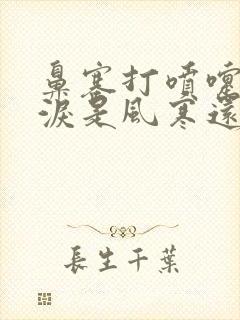 鼻塞打噴嚏
淚是風寒還
長生千葉